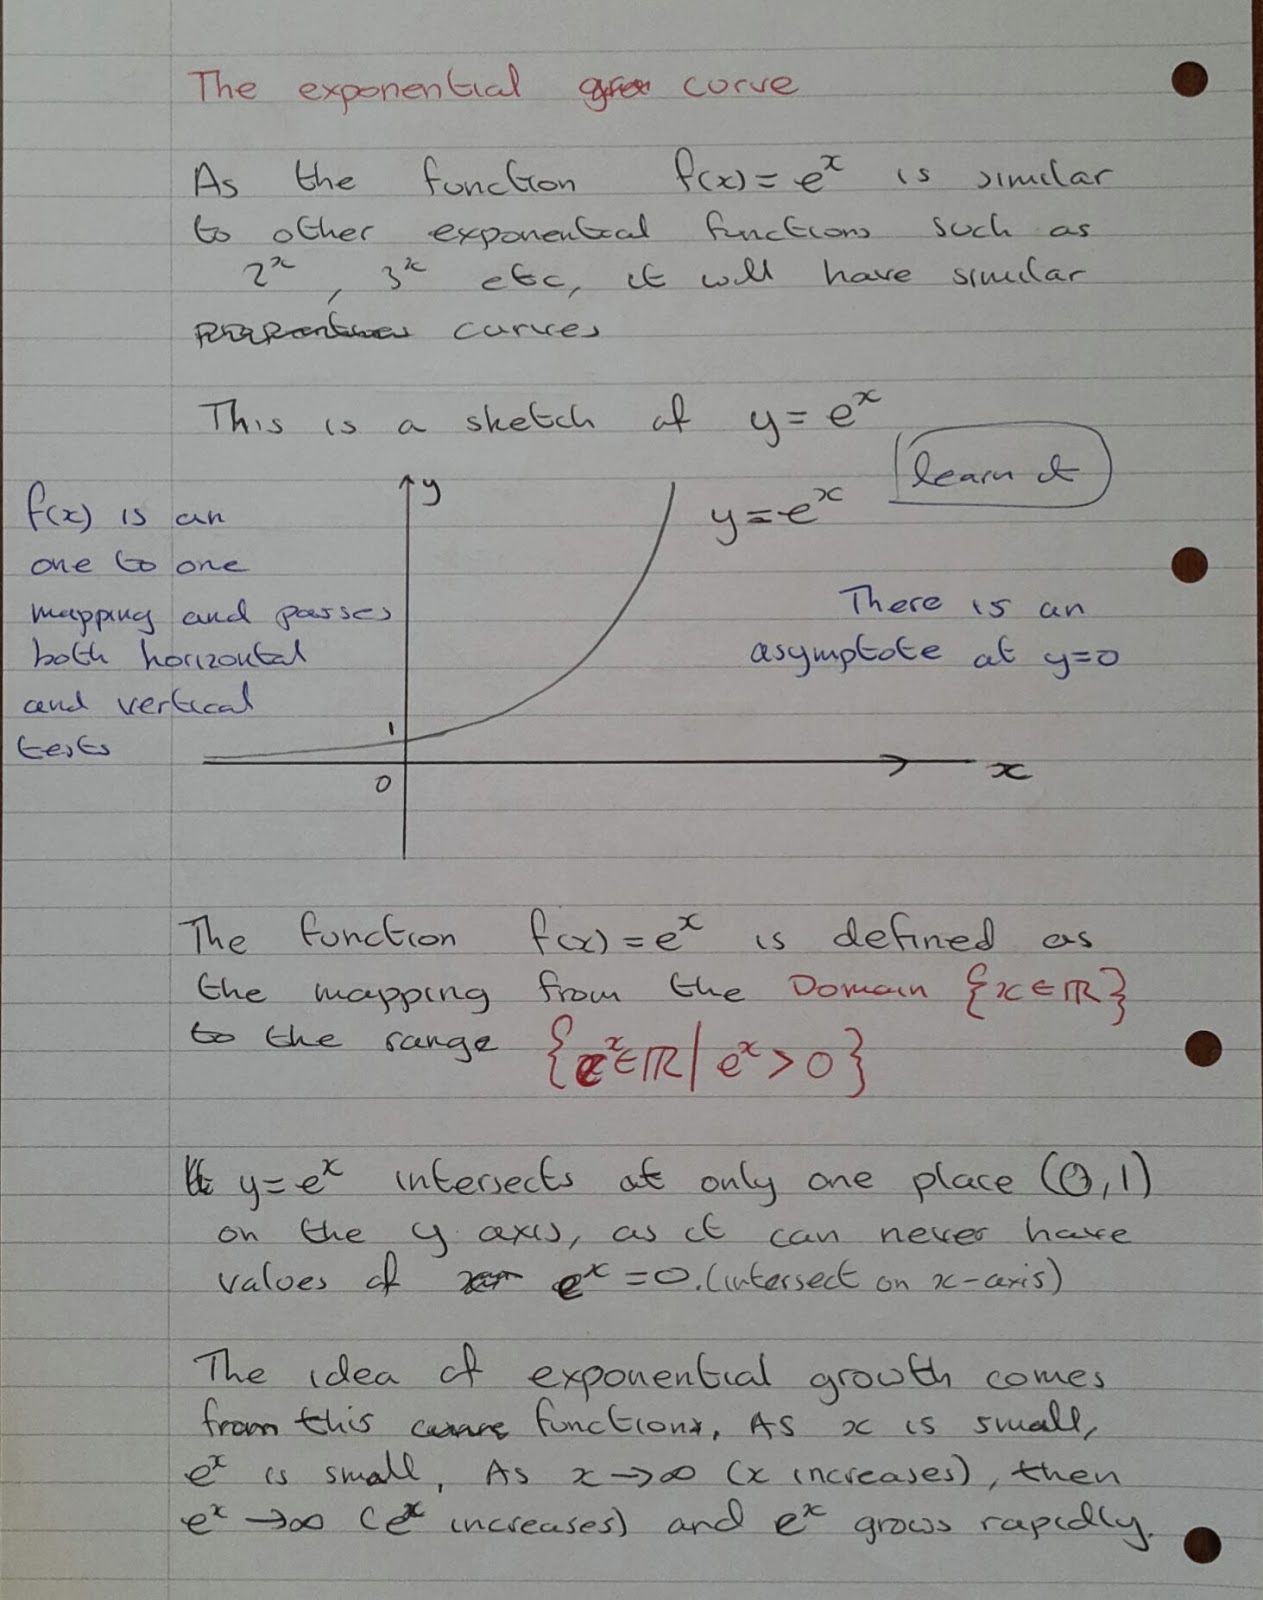 The exponential curve
As the function f(x) = eˣ is similar
to other exponential functions such as
2ˣ, 3ˣ etc, it will have similar
properties curves
This is a sketch of y = eˣ
learn it
y
y = eˣ
f(x) is an
one to one
mapping and passes
both horizontal
and vertical
tests
There is an
asymptote at y=0
1
0
x
The function f(x) = eˣ is defined as
the mapping from the Domain {x ∈ ℝ}
to the range {eˣ ∈ ℝ | eˣ > 0}
y = eˣ intersects at only one place (0,1)
on the y axis, as it can never have
values of eˣ = 0. (intersect on x-axis)
The idea of exponential growth comes
from this curve function, As x is small,
eˣ is small, As x → ∞ (x increases), then
eˣ → ∞ (eˣ increases) and eˣ grows rapidly.